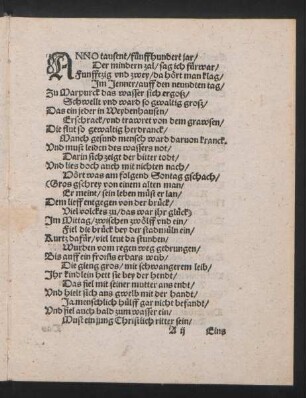 ANNO tausent/fünffhundert jar/
Der mindern zal/sag ich fürwar/
Funfftzig vnd zwey/da hört man klag/
Im Jenner/auff den neundten tag/
Zu Marpurck das wasser sich ergoß/
Schwellt vnd ward so gewaltig groß/
Das ein jeder in Weydenhausen/
Erschrack/vnd trawret von dem grawsen/
Die flut so gewaltig herdranck/
Manch gesund mensch ward daruon kranck.
Vnd must leiden des wassers not/
Darin sich zeigt der bitter todt/
Vnd lies doch auch mit nichten nach/
Dört was am folgend Sontag gschach/
Gros gschrey von einem alten man/
Er meint/ sein leben müst er lan/
Dem lieff entgegen von der brück/
Viel volckes zu/das war jhr glück/
Im Mittag/zwischen zwölff vnd ein/
Fiel die brück bey der stadmüln ein/
Kurtz dafür/viel leut da stunden/
Wurden vom regen weg gedrungen/
Bis auff ein frosts erbars wib/
Die gieng gros/mit schwangerem leib/
Jhr kindlein hett sie bey der hendt/
Das fiel mit seiner mutter ans endt/
Vnd hielt sich ans gwelb mit der handt/
Ja menschlich hülff gar nicht befandt/
Vnd fiel auch bald zum wasser ein/
Must ein jung Christlich ritter sein/
A ij Eins